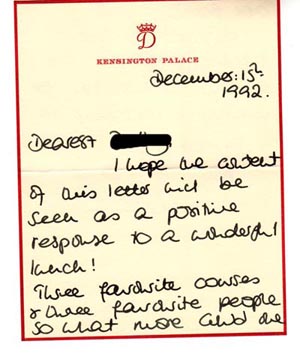 D
KENSINGTON PALACE
December: 15th.
1992.
Dearest
I hope the content
of this letter will be
seen as a positive
response to a wonderful
lunch!
Three favourite courses
& three favourite people
so what more could one